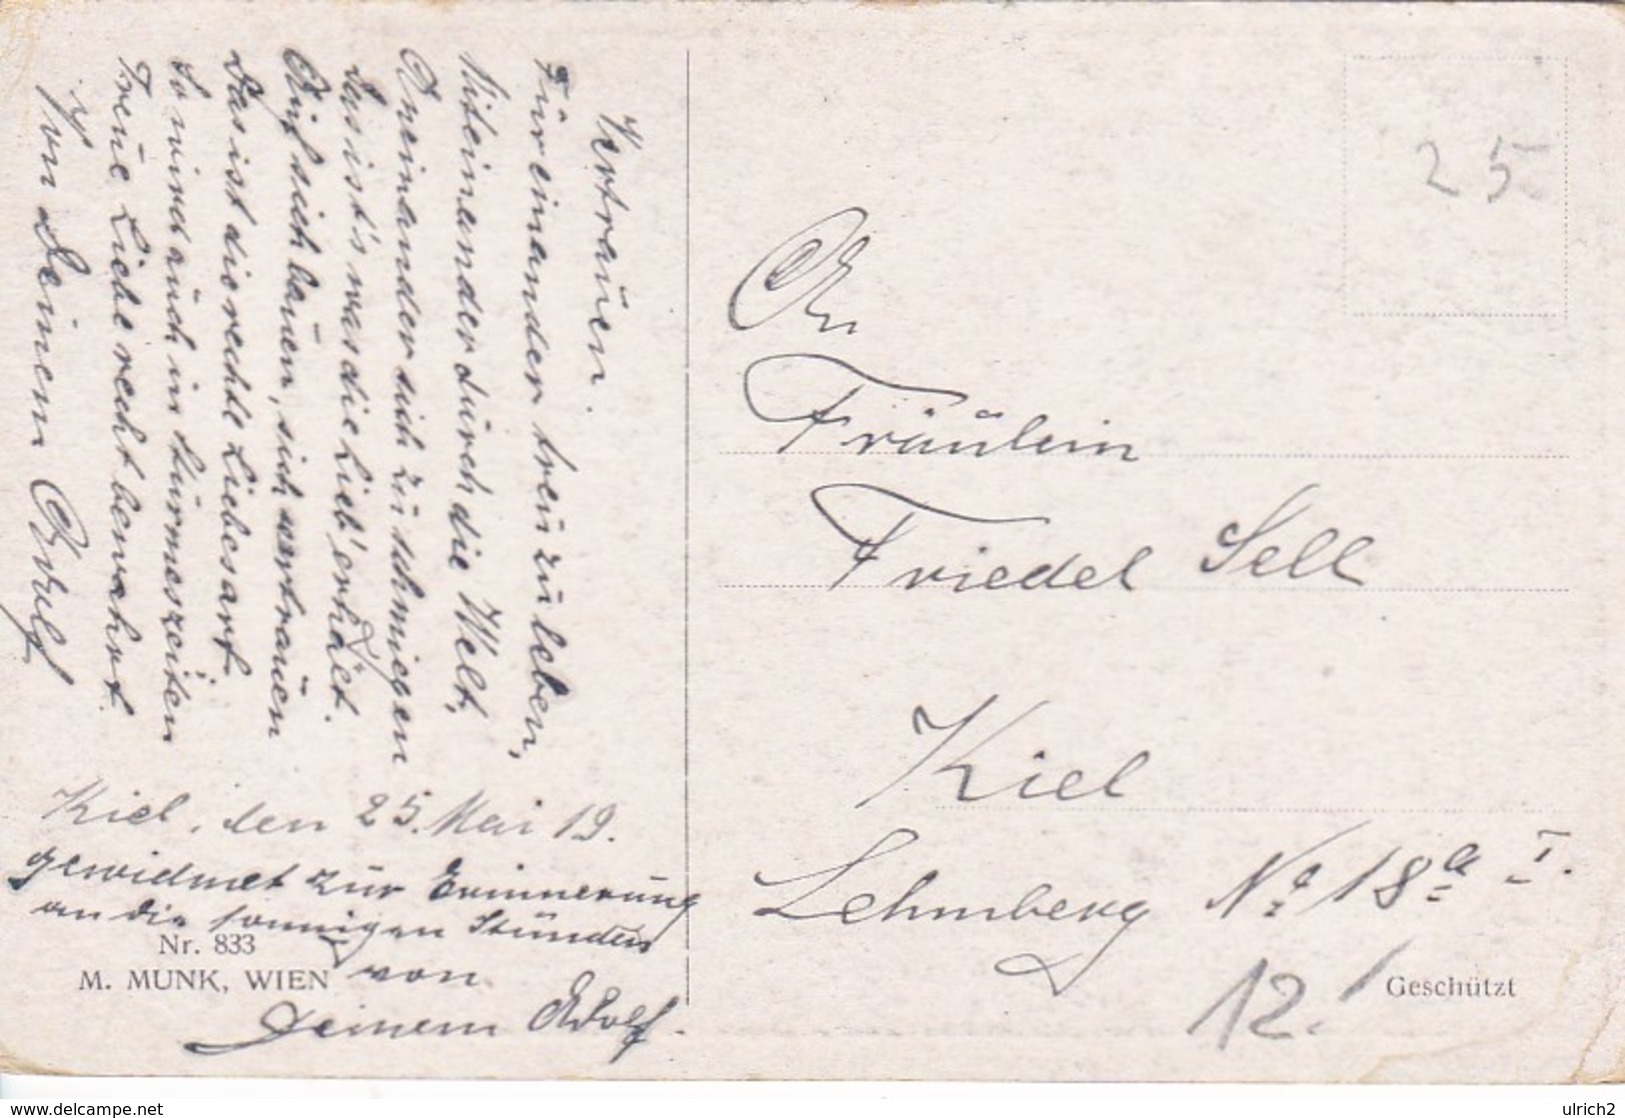 Vertrauen.
Füreinander treu zu leben,
Miteinander durch die Welt,
Aneinander sich zu schmiegen
Das ist's was die Lieb' erhält.
Auf sich bauen, sich vertrauen
Das ist die rechte Liebesart
So wird auch in Stürmeszeiten
Treue Liebe recht bewahrt.
Von Deinem Adolf
Kiel, den 25. Mai 19.
gewidmet zur Erinnerung
an die sonnigen Stunden
von
Deinem Adolf.
Nr. 833
M. MUNK, WIEN
25
An
Fräulein
Friedel Sell
Kiel
Lehmberg No 18a I.
12.
Geschützt
ulrich2